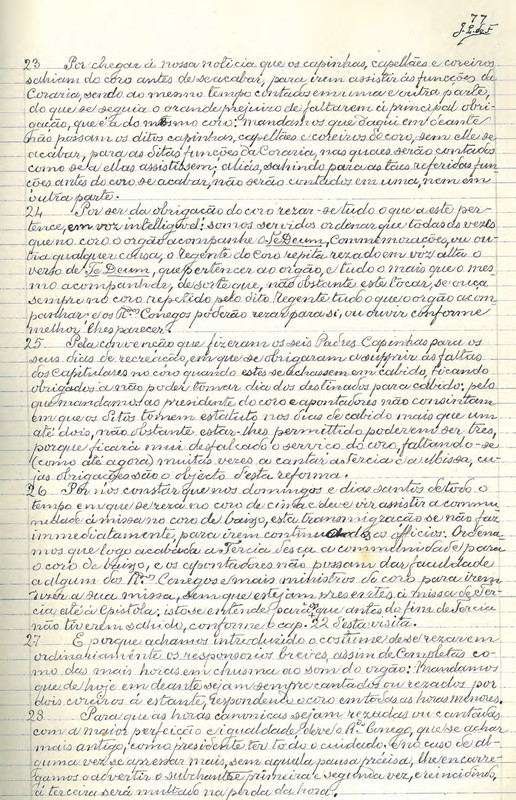 77
23 Por chegar á nossa noticia que os capinhas, capellães e coreiros
sahiam do coro antes de se acabar, para irem assistir ás funcções da
Coraria, sendo ao mesmo tempo contados em uma e outra parte,
do que se seguia o grande prejuizo de faltarem á principal obri-
gação, que é a do mesmo coro: mandamos que daqui em deante
não possam os ditos capinhas, capellães e coreiros do coro, sem elle se
acabar, para as ditas funcções da Coraria, nas quaes serão contados
como se a ellas assistissem; aliás, sahindo para as taes referidas func
ções antes do coro se acabar, não serão contados em uma, nem em
outra parte.
24 Por ser da obrigação do coro rezar-se tudo o que a este per-
tence, em voz intelligivel: somos servidos ordenar que todas as vezes
que no coro o orgão acompanhe o Te Deum, Commemorações, ou ou-
tra qualquer cousa, o Regente do Coro repita rezado em voz alta o
verso de Te Deum, que pertencer ao orgão, e tudo o mais que o mes
mo acompanhar, de sorte que, não obstante este tocar, se ouça
sempre no coro repetido pelo dito Regente tudo o que o orgão acom
panhar e os R.mos Conegos poderão rezar para si, ou ouvir conforme
melhor lhes parecer.
25 Pela convenção que fizeram os seis Padres Capinhas para os
seus dias de recreação, em que se obrigaram a supprir as faltas
dos Capitulares no coro quando estes se achassem em cabido, ficando
obrigados a não poder tomar dia dos destinados para cabido; pelo
que mandamos ao presidente do coro e apontadores não consintam
em que os ditos tomem estatuto nos dias de cabido mais que um
até dois, não obstante estar-lhes permittido poderem ser tres,
porque ficará mui desfalcado o serviço do coro, faltando-se
(como até agora) muitas vezes a cantar a Tercia e a Missa, cu-
jas obrigações são o objecto desta reforma.
26 Por nos constar que nos domingos e dias santos de todo o
tempo em que se reza no coro de cima e deve vir assistir a commu
nidade á missa no coro de baixo, esta transmigração se não faz
immediatamente, para irem continuando os officios: Ordena
mos que logo acabada a Tercia desça a communidade para
o coro de baixo, e os apontadores não possam dar faculdade
a algum dos R.mos Conegos e mais ministros do coro para irem
dizer a sua missa, sem que estejam presentes á missa de Ter-
cia até á Epistola; isto se entende para os que antes do fim de Tercia
não tiverem sahido, conforme o cap. 22 desta visita.
27 E porque achamos introduzido o costume de se rezarem
ordinariamente os responsorios breves, assim de Completas co-
mo das mais horas em chusma ao som do orgão: Mandamos
que de hoje em deante sejam sempre cantados ou rezados por
dois coreiros á estante, respondendo o coro em todas as horas menores.
28 Para que as horas canonicas sejam rezadas ou cantadas
com a maior perfeição e igualdade deve o R.mo Conego, que se achar
mais antigo, como presidente ter todo o cuidado. E no caso de al-
guma vez se apressar mais, sem aquella pausa precisa, lhe encarre-
gamos a advertir o subchantre primeira e segunda vez, e reincidindo,
á terceira será multado na perda da hora.